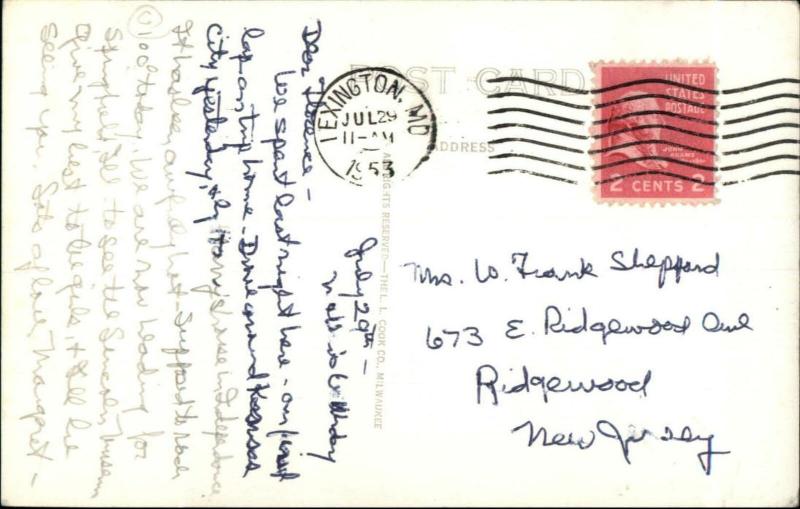 POST CARD
ADDRESS
LEXINGTON, MO
JUL 29
11-AM
1953
UNITED
STATES
POSTAGE
JOHN
ADAMS
2 CENTS 2
ALL RIGHTS RESERVED—THE L. L. COOK CO., MILWAUKEE
July 29th—
Matt's birthday
Dear Florence—
We spent last night here - our first
lap on trip home. Drove around Kansas
City yesterday, & by Harry's house in Independence
It has been awfully hot & supposed to reach
100 today. We are now heading for
Springfield Ill. to see the Lincoln museum
Give my best to the girls, & I'll be
seeing you. Lots of love, Margaret—
Mrs. W. Frank Sheppard
673 E. Ridgewood Ave
Ridgewood
New Jersey